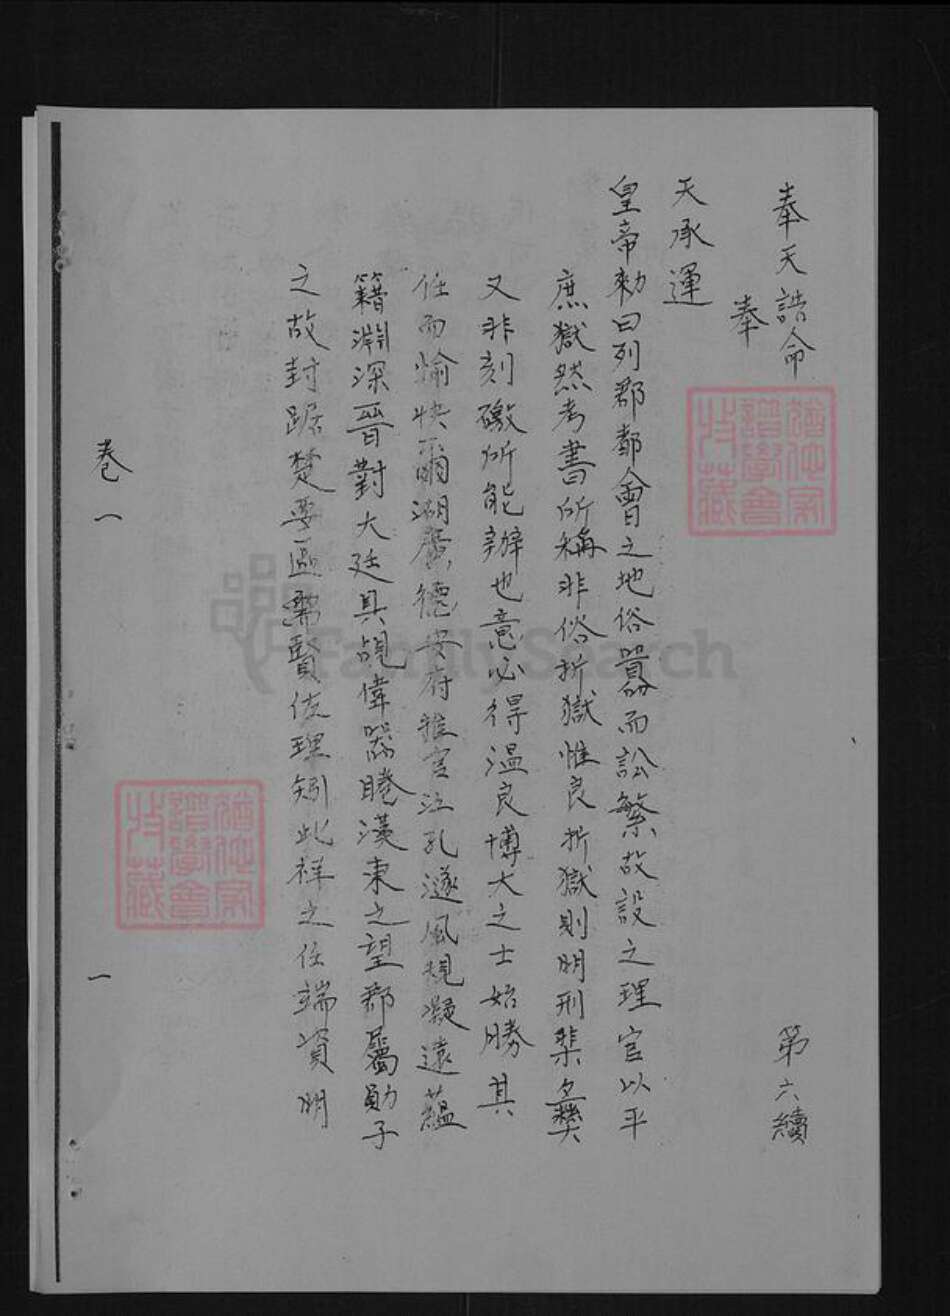 奉天誥命 第六續
奉
天承運
皇帝勑曰列郡都會之地俗囂而訟繁故設之理官以平
庶獄然考書所稱非佞折獄惟良折獄則明刑棐彝
又非刻礉所能辦也意必得温良博大之士始勝其
任而愉快爾湖廣德安府推官江孔邃風規凝遠蘊
籍淵深晉對大廷具覘偉器睠漢東之望郡屬勛子
之故封踞楚要區需賢佐理矧此祥之任端資明
卷一
一
FamilySearch